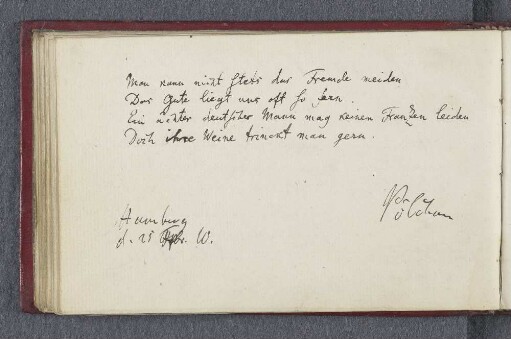 Man kann nicht stets das Fremde meiden
Das Gute liegt uns oft so fern.
Ein ächter deutscher Mann mag keinen Franzen leiden
Doch ihre Weine trinckt man gern.
Hamburg
d. 25 W.